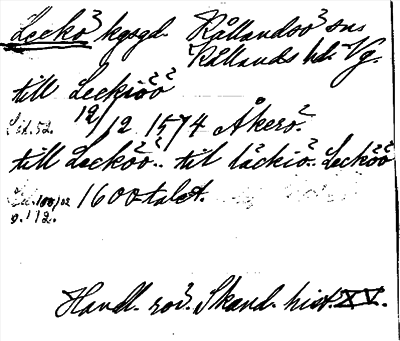 Leckö kgsgd. Kållandsö sn
Kållands hd. Vg.
till Leckiöö
Sid. 52. 12/12 1574 Åkerö.
till Lecköö.. til läckiö.. Lecköö
1600-talet.
s. 112.
Handl. rör. Skand. hist. XV.